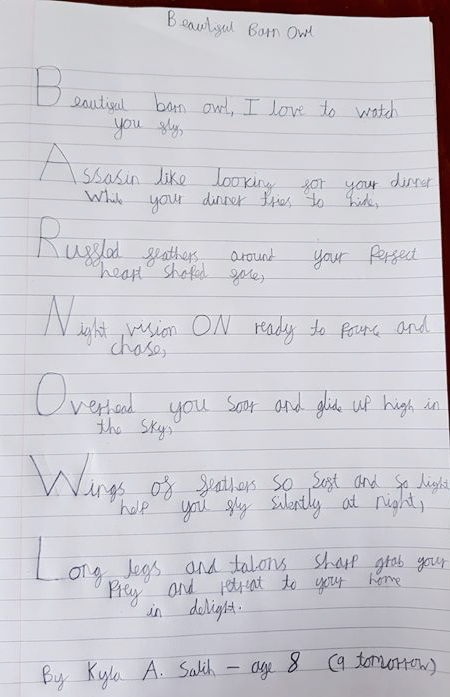 Beautiful Barn Owl
Beautiful barn owl, I love to watch
you fly,
Assasin like looking for your dinner
while your dinner tries to hide,
Ruffled feathers around your perfect
heart shaped face,
Night vision ON ready to pounce and
chase,
Overhead you soar and glide up high in
the sky,
Wings of feathers so soft and so light
help you fly silently at night,
Long legs and talons sharp grab your
prey and retreat to your home
in delight.
By Kyla A. Salih - age 8 (9 tomorrow)